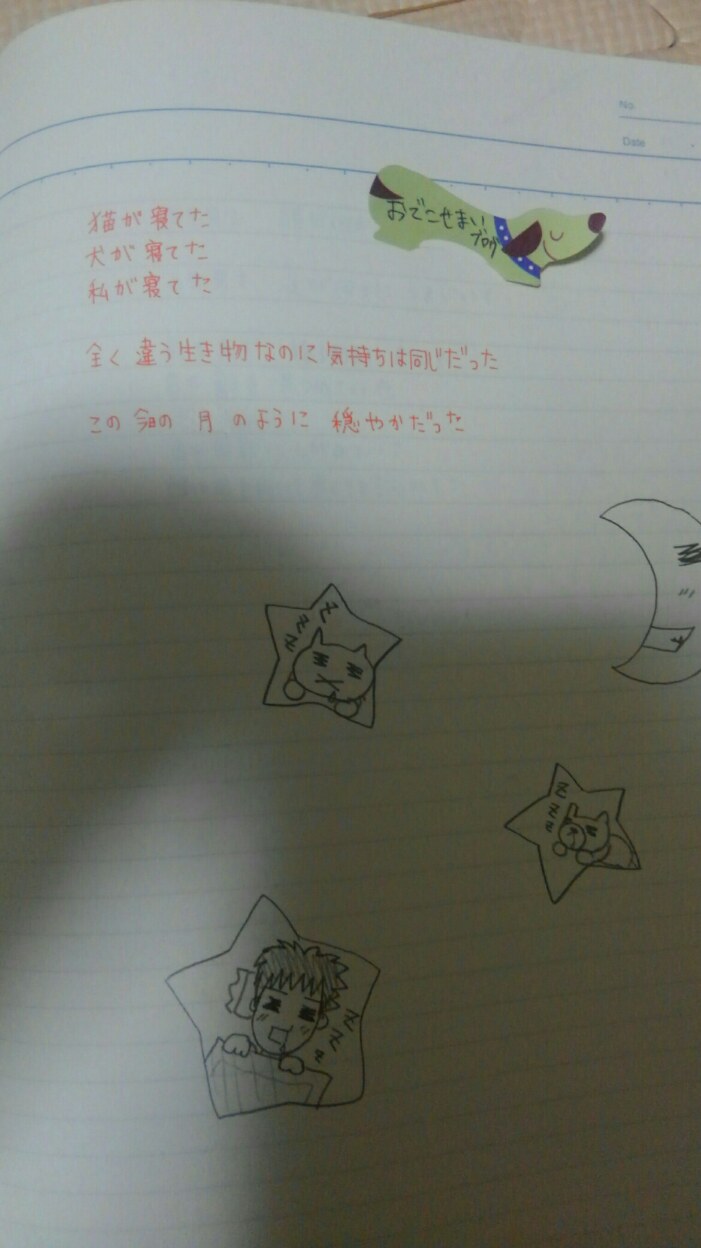 No.
Date
おでこせまい
ブログ
猫が寝てた
犬が寝てた
私が寝てた
全く違う生き物なのに気持ちは同じだった
この今日の月のように穏やかだった
zzz
zzz
zzz